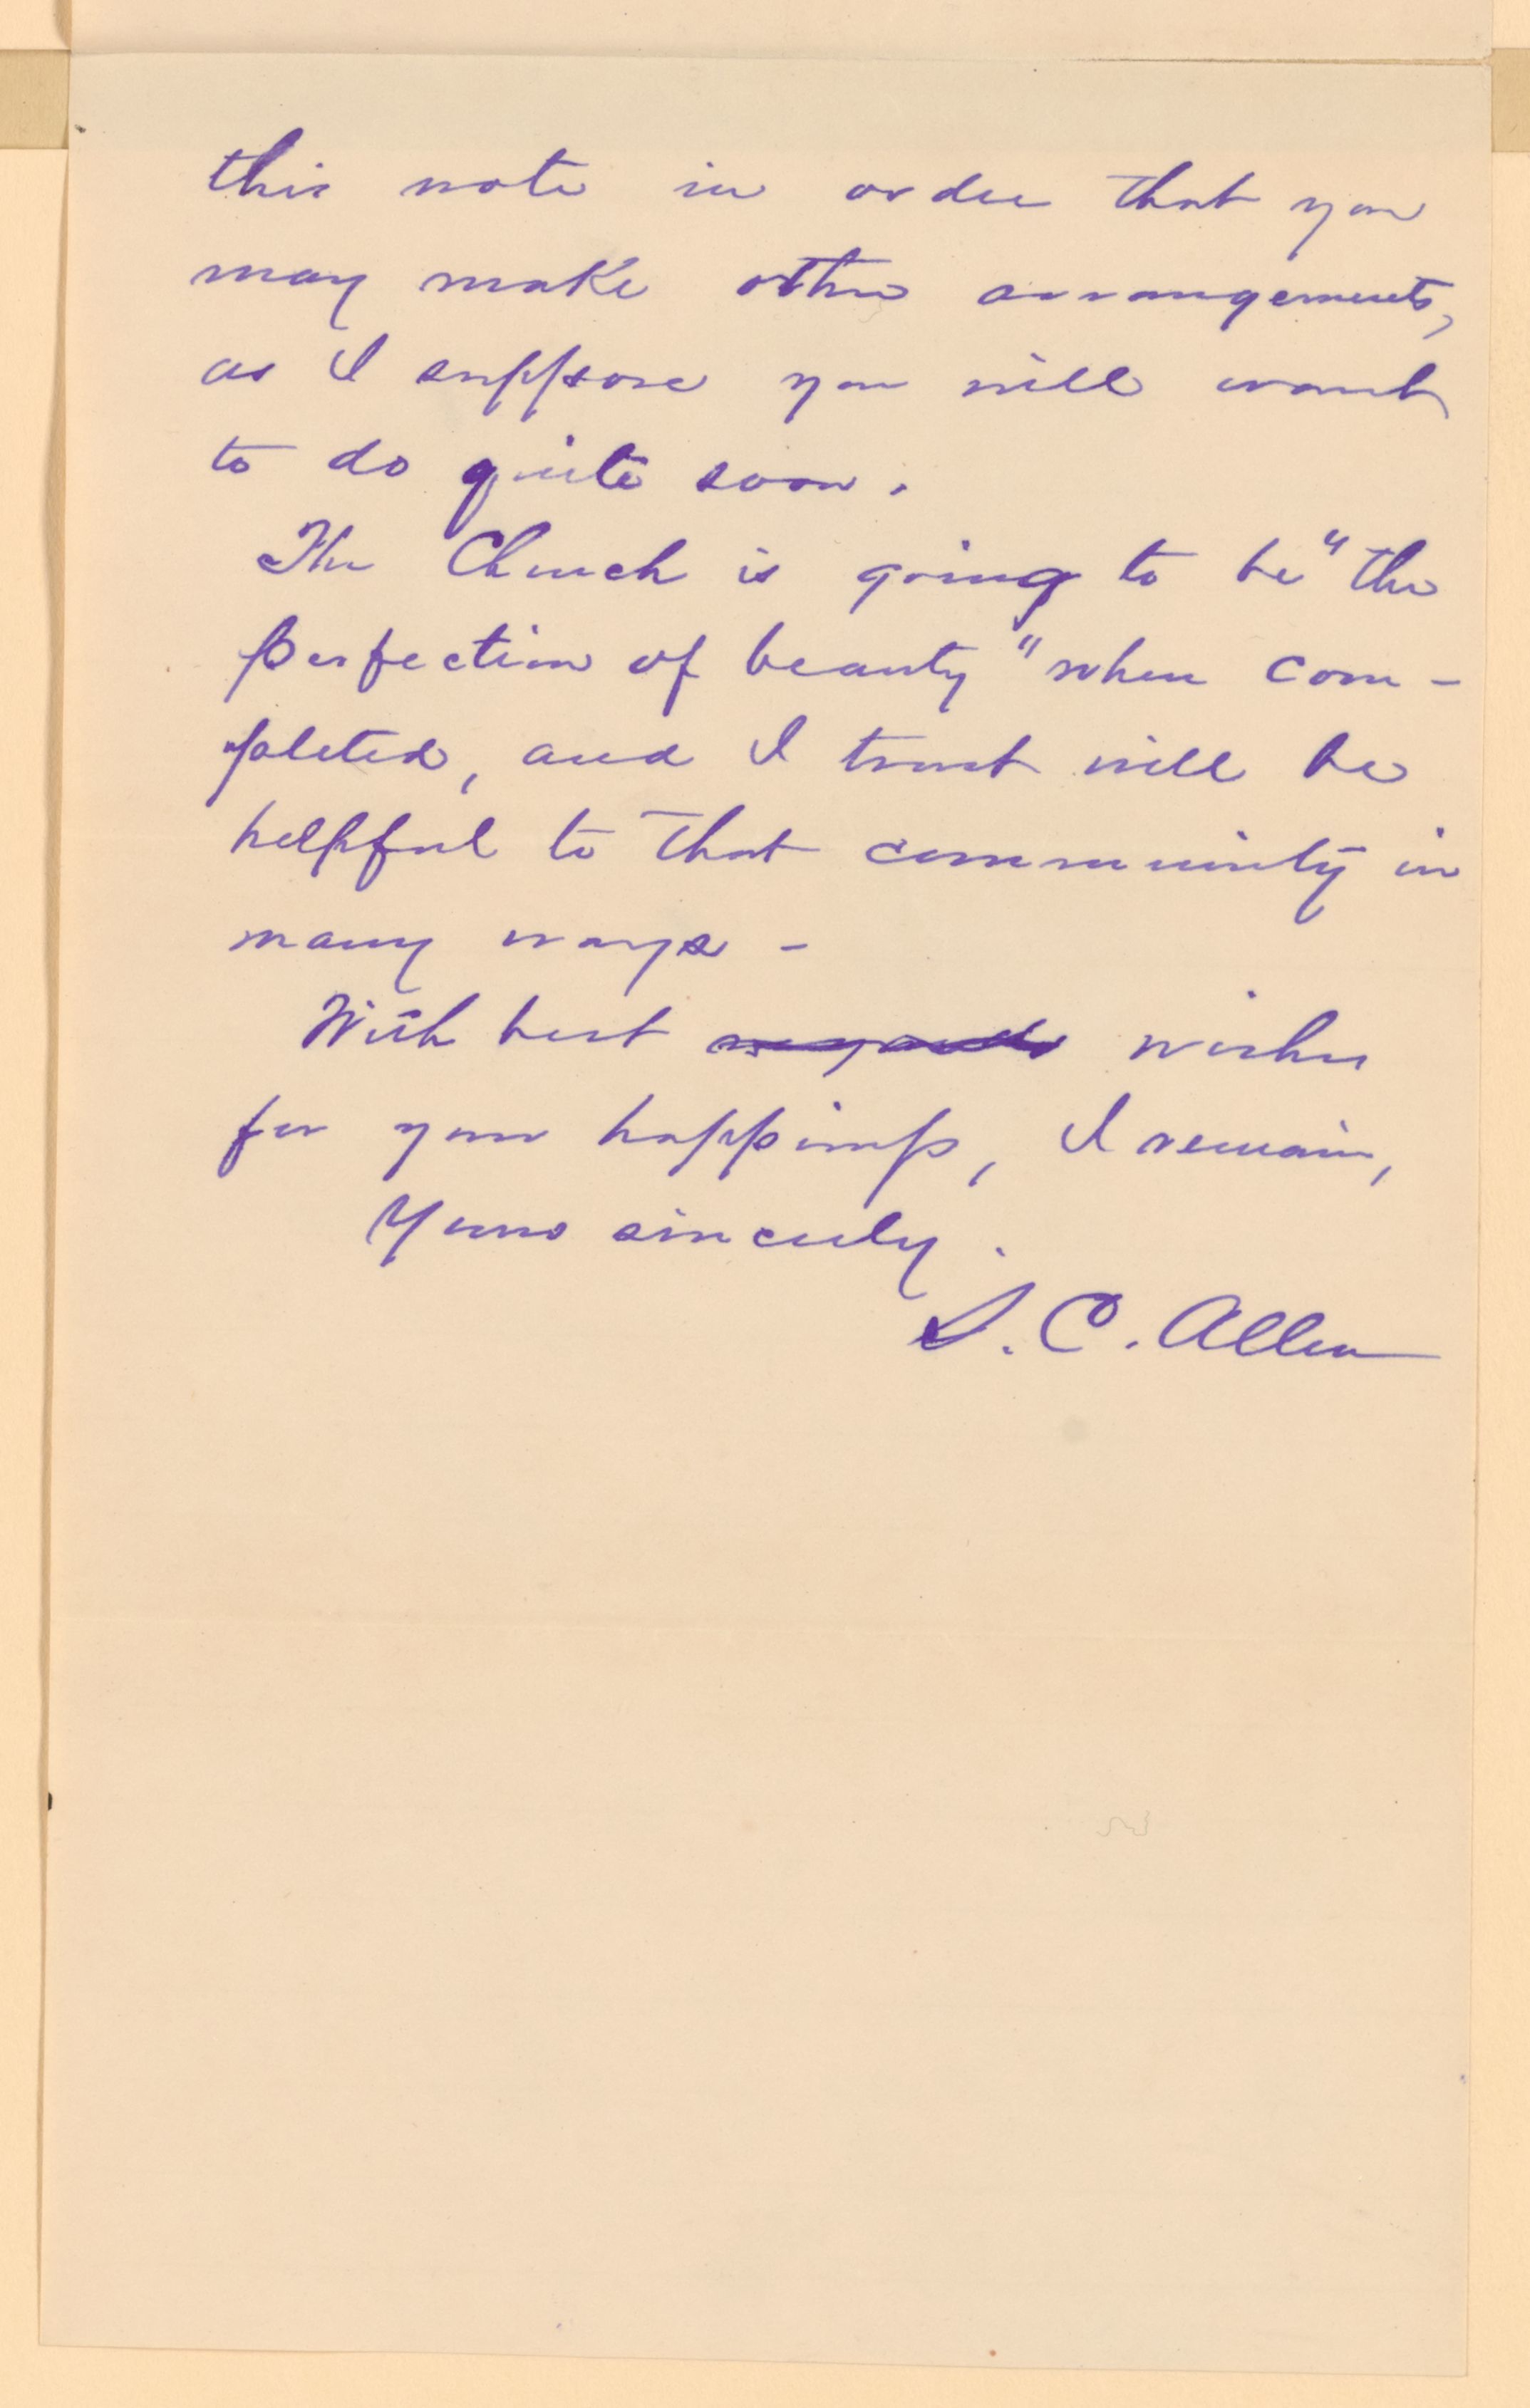 this note in order that you
may make other arrangements,
as I suppose you will want
to do quite soon.
The Church is going to be "the
perfection of beauty" when com-
pleted, and I trust will be
helpful to that community in
many ways -
With best regards wishes
for your happiness, I remain,
Yours sincerely.
S. C. Allen